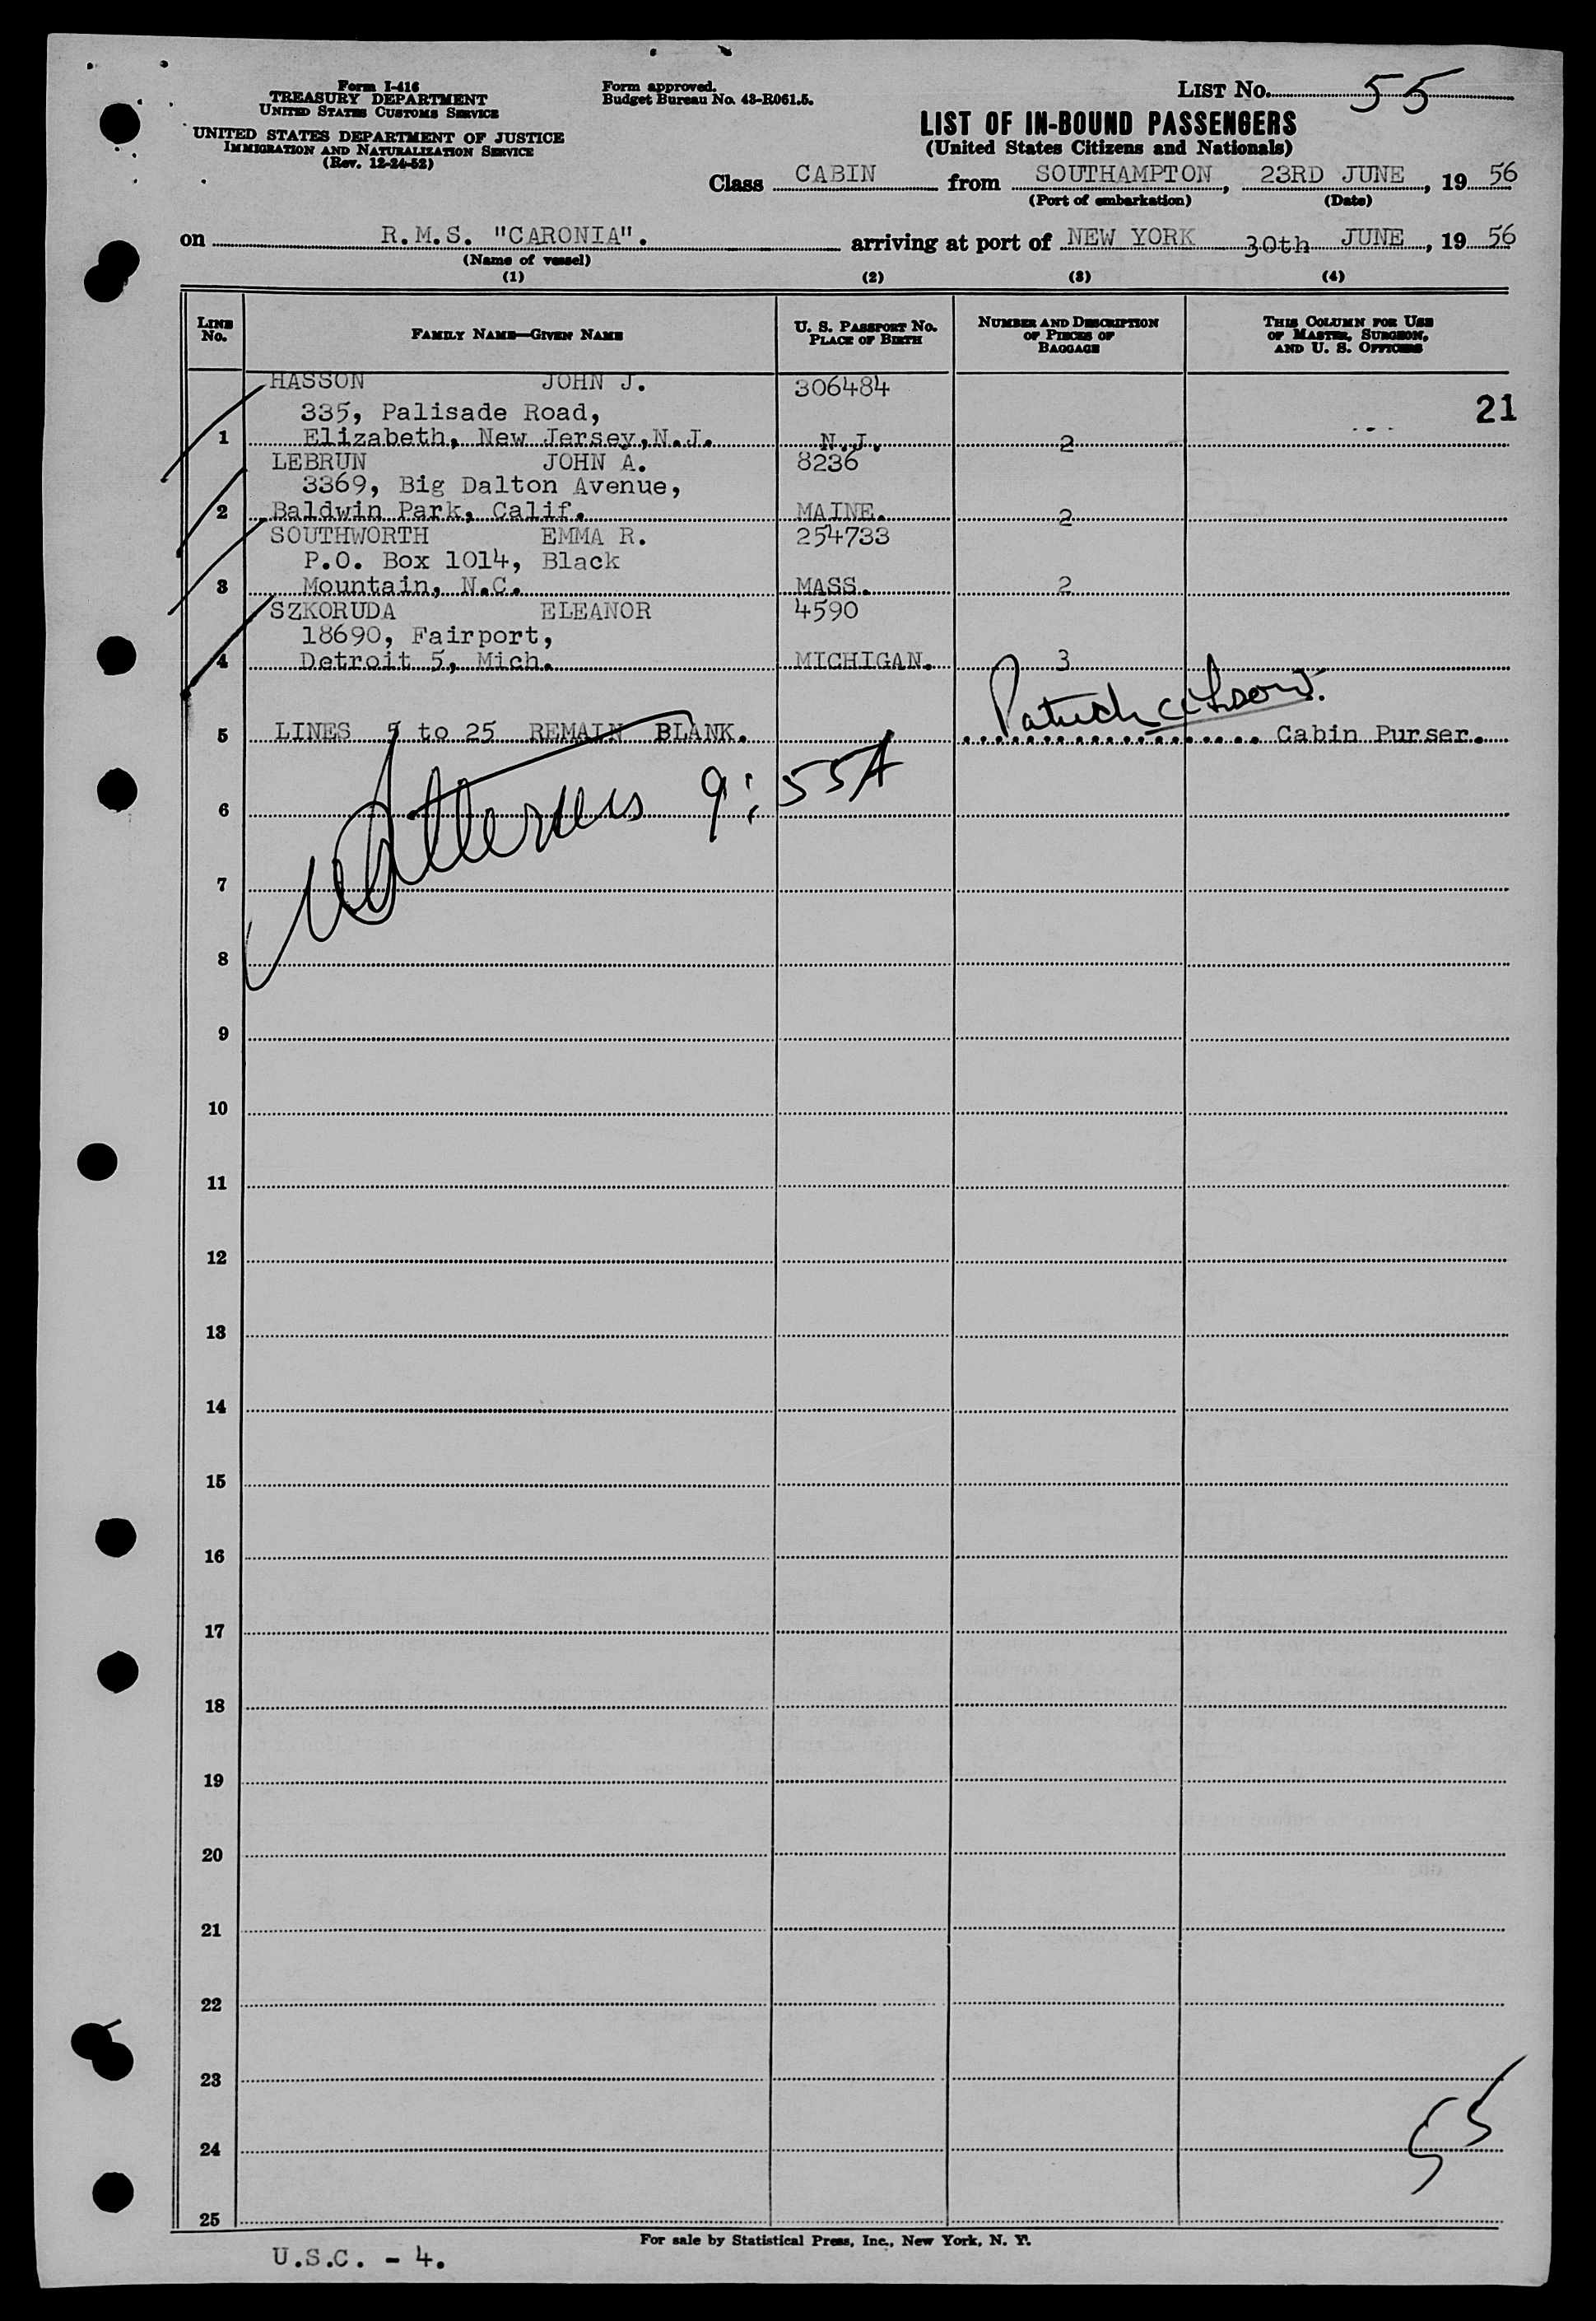 Form I-416
TREASURY DEPARTMENT
UNITED STATES CUSTOMS SERVICE
UNITED STATES DEPARTMENT OF JUSTICE
IMMIGRATION AND NATURALIZATION SERVICE
(Rev. 12-24-52)
Form approved.
Budget Bureau No. 43-R061.5.
LIST No. 55
LIST OF IN-BOUND PASSENGERS
(United States Citizens and Nationals)
Class CABIN from SOUTHAMPTON, 23RD JUNE, 19 56
(Port of embarkation) (Date)
on R.M.S. "CARONIA". arriving at port of NEW YORK 30th JUNE, 19 56
(Name of vessel)
(1) (2) (3) (4)
LINE No. FAMILY NAME—GIVEN NAME U. S. PASSPORT No. PLACE OF BIRTH NUMBER AND DESCRIPTION OF PIECES OF BAGGAGE THIS COLUMN FOR USE OF MASTER, SURGEON, AND U. S. OFFICERS
HASSON JOHN J. 306484
335, Palisade Road, 21
1 Elizabeth, New Jersey, N.J. N.J. 2
LEBRUN JOHN A. 8236
3369, Big Dalton Avenue,
2 Baldwin Park, Calif. MAINE. 2
SOUTHWORTH EMMA R. 254733
P.O. Box 1014, Black
3 Mountain, N.C. MASS. 2
SZKORUDA ELEANOR 4590
18690, Fairport,
4 Detroit 5, Mich. MICHIGAN. 3
5 LINES 5 to 25 REMAIN BLANK. Cabin Purser.
9:55A
6
7
8
9
10
11
12
13
14
15
16
17
18
19
20
21
22
23
24 55
25
For sale by Statistical Press, Inc., New York, N. Y.
U.S.C. - 4.